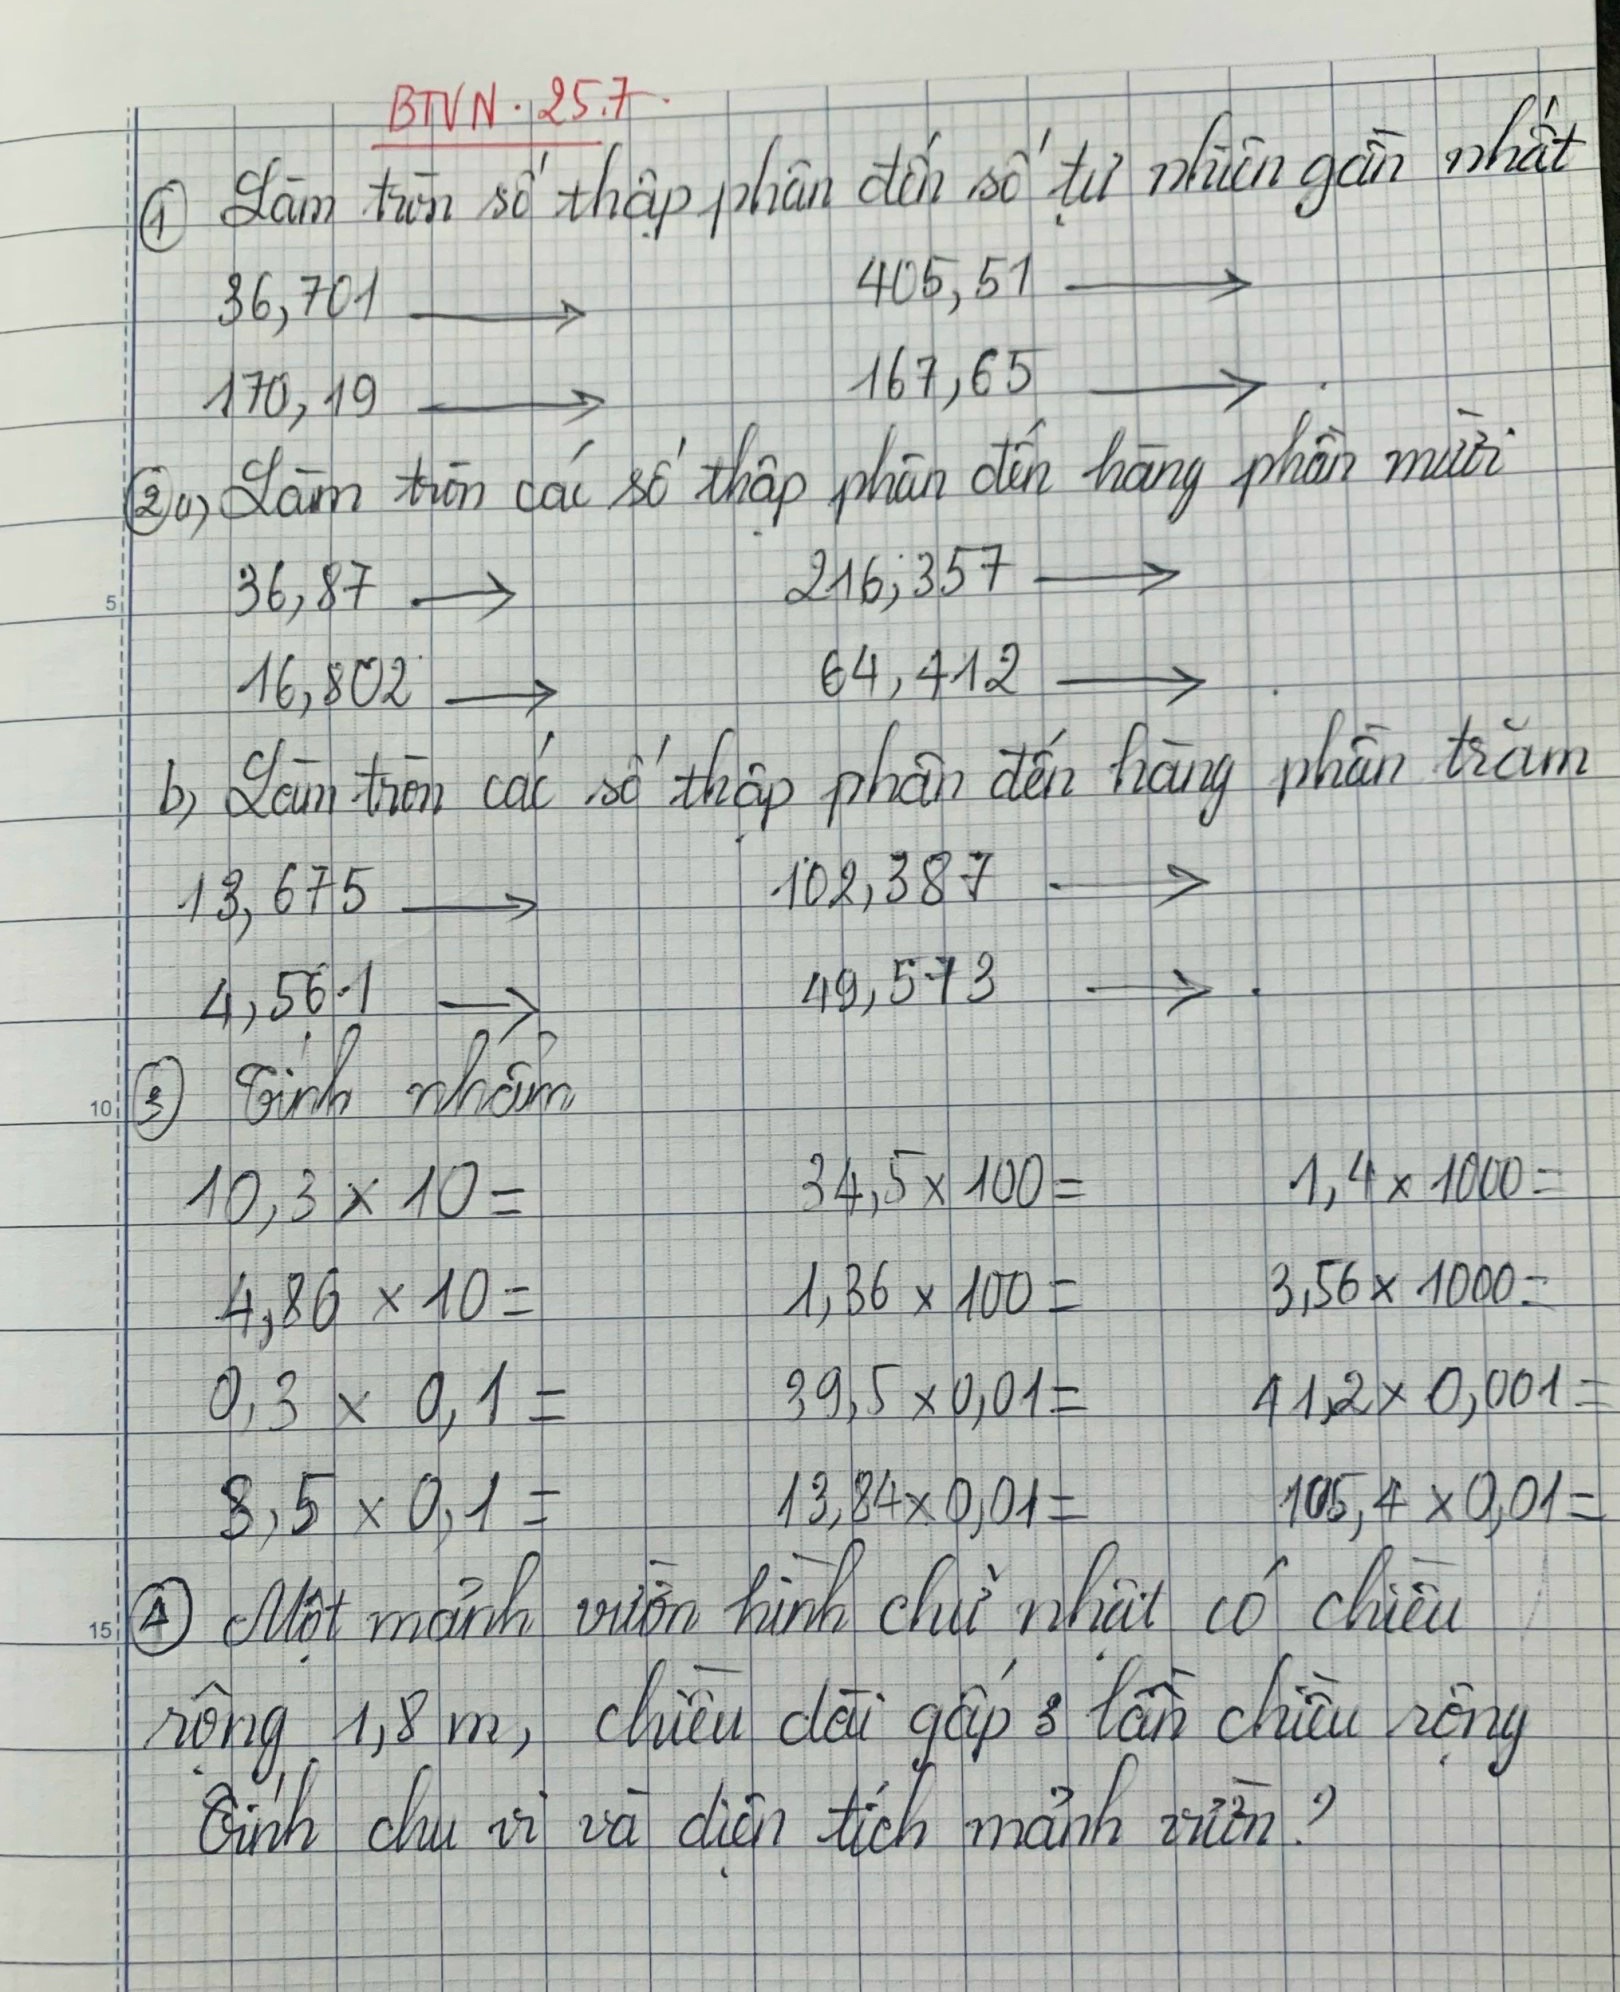 BTVN. 25.7
① Làm tròn số thập phân đến số tự nhiên gần nhất
36,701 → 405,51 →
170,19 → 167,65 →
② a, Làm tròn các số thập phân đến hàng phần mười
36,87 → 216,357 →
16,802 → 64,412 →
b, Làm tròn các số thập phân đến hàng phần trăm
13,675 → 102,387 →
4,561 → 49,573 →
③ Tính nhẩm
10,3 x 10 = 34,5 x 100 = 1,4 x 1000 =
4,86 x 10 = 1,36 x 100 = 3,56 x 1000 =
0,3 x 0,1 = 39,5 x 0,01 = 41,2 x 0,001 =
8,5 x 0,1 = 13,84 x 0,01 = 105,4 x 0,01 =
④ Một mảnh vườn hình chữ nhật có chiều
rộng 1,8 m, chiều dài gấp 3 lần chiều rộng
Tính chu vi và diện tích mảnh vườn?
5
10
15